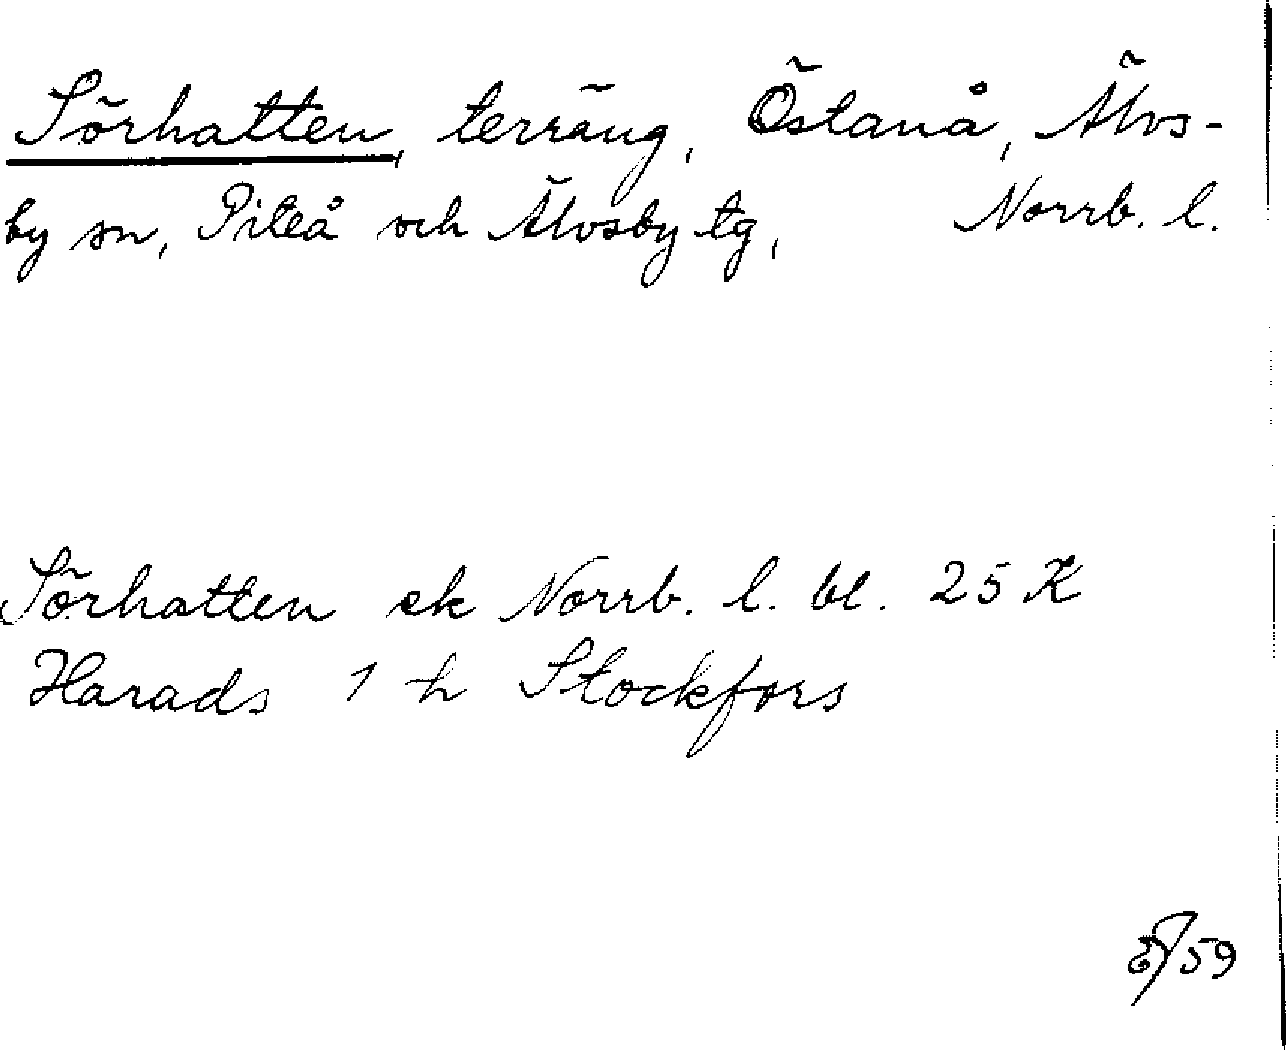 Sörhatten, terräng, Östanå, Älvs-
by sn, Piteå och Älvsby tg, Norrb. l.
Sörhatten ek Norrb. l. bl. 25 K
Harads 1 h Stockfors
59